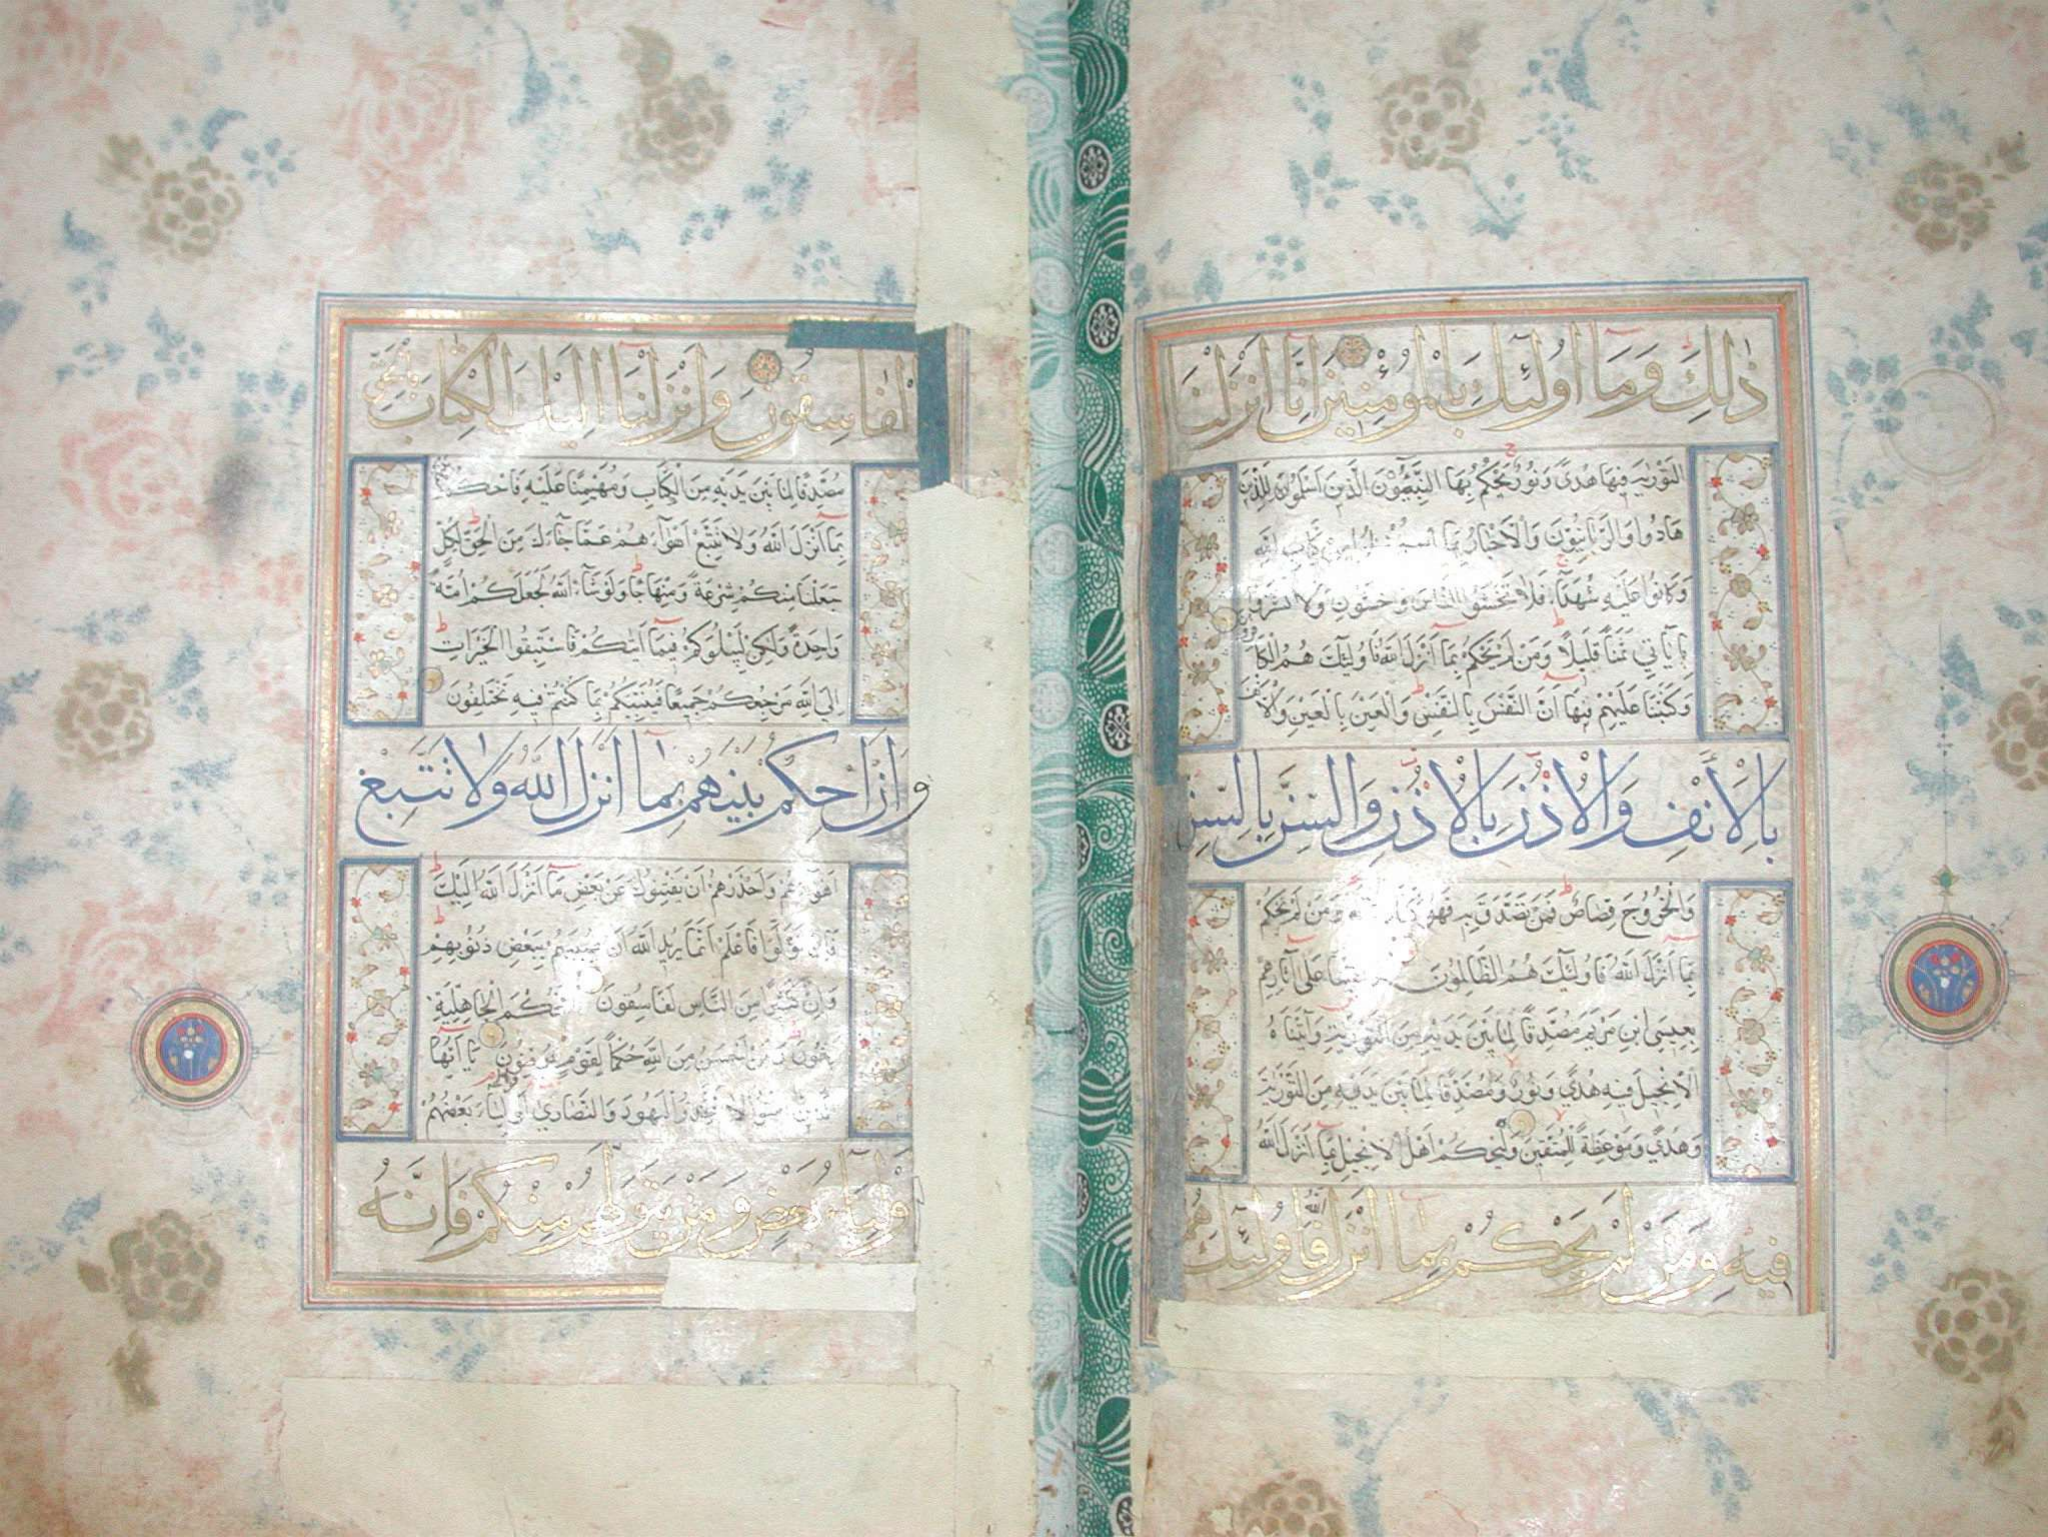 ذٰلِكَ وَمَا اُولٰٓئِكَ بِالْمُؤْمِنِينَ اِنَّا اَنْزَلْنَا
التَّوْرٰيةَ فِيهَا هُدًى وَنُورٌ يَحْكُمُ بِهَا النَّبِيُّونَ الَّذِينَ اَسْلَمُوا لِلَّذِينَ
هَادُوا وَالرَّبَّانِيُّونَ وَالْاَحْبَارُ بِمَا اسْتُحْفِظُوا مِنْ كِتَابِ اللّٰهِ
وَكَانُوا عَلَيْهِ شُهَدَآءَ فَلَا تَخْشَوُا النَّاسَ وَاخْشَوْنِ وَلَا تَشْتَرُوا
بِاٰيَاتِي ثَمَنًا قَلِيلًا وَمَنْ لَمْ يَحْكُمْ بِمَا اَنْزَلَ اللّٰهُ فَاُولٰٓئِكَ هُمُ الْكَافِرُونَ
وَكَتَبْنَا عَلَيْهِمْ فِيهَا اَنَّ النَّفْسَ بِالنَّفْسِ وَالْعَيْنَ بِالْعَيْنِ وَالْاَنْفَ
بِالْاَنْفِ وَالْاُذُنَ بِالْاُذُنِ وَالسِّنَّ بِالسِّنِّ
وَالْجُرُوحَ قِصَاصٌ فَمَنْ تَصَدَّقَ بِهِ فَهُوَ كَفَّارَةٌ لَهُ وَمَنْ لَمْ يَحْكُمْ
بِمَا اَنْزَلَ اللّٰهُ فَاُولٰٓئِكَ هُمُ الظَّالِمُونَ وَقَفَّيْنَا عَلٰى اٰثَارِهِمْ
بِعِيسَى ابْنِ مَرْيَمَ مُصَدِّقًا لِمَا بَيْنَ يَدَيْهِ مِنَ التَّوْرٰيةِ وَاٰتَيْنَاهُ
الْاِنْجِيلَ فِيهِ هُدًى وَنُورٌ وَمُصَدِّقًا لِمَا بَيْنَ يَدَيْهِ مِنَ التَّوْرٰيةِ
وَهُدًى وَمَوْعِظَةً لِلْمُتَّقِينَ وَلْيَحْكُمْ اَهْلُ الْاِنْجِيلِ بِمَآ اَنْزَلَ اللّٰهُ
فِيهِ وَمَنْ لَمْ يَحْكُمْ بِمَا اَنْزَلَ اللّٰهُ فَاُولٰٓئِكَ هُمُ
الْفَاسِقُونَ وَاَنْزَلْنَآ اِلَيْكَ الْكِتَابَ بِالْحَقِّ
مُصَدِّقًا لِمَا بَيْنَ يَدَيْهِ مِنَ الْكِتَابِ وَمُهَيْمِنًا عَلَيْهِ فَاحْكُمْ بَيْنَهُمْ
بِمَآ اَنْزَلَ اللّٰهُ وَلَا تَتَّبِعْ اَهْوَآءَهُمْ عَمَّا جَآءَكَ مِنَ الْحَقِّ لِكُلٍّ
جَعَلْنَا مِنْكُمْ شِرْعَةً وَمِنْهَاجًا وَلَوْ شَآءَ اللّٰهُ لَجَعَلَكُمْ اُمَّةً
وَاحِدَةً وَلٰكِنْ لِيَبْلُوَكُمْ فِيمَآ اٰتٰيكُمْ فَاسْتَبِقُوا الْخَيْرَاتِ
اِلَى اللّٰهِ مَرْجِعُكُمْ جَمِيعًا فَيُنَبِّئُكُمْ بِمَا كُنْتُمْ فِيهِ تَخْتَلِفُونَ
وَاَنِ احْكُمْ بَيْنَهُمْ بِمَآ اَنْزَلَ اللّٰهُ وَلَا تَتَّبِعْ
اَهْوَآءَهُمْ وَاحْذَرْهُمْ اَنْ يَفْتِنُوكَ عَنْ بَعْضِ مَآ اَنْزَلَ اللّٰهُ اِلَيْكَ
فَاِنْ تَوَلَّوْا فَاعْلَمْ اَنَّمَا يُرِيدُ اللّٰهُ اَنْ يُصِيبَهُمْ بِبَعْضِ ذُنُوبِهِمْ
وَاِنَّ كَثِيرًا مِنَ النَّاسِ لَفَاسِقُونَ اَفَحُكْمَ الْجَاهِلِيَّةِ
يَبْغُونَ وَمَنْ اَحْسَنُ مِنَ اللّٰهِ حُكْمًا لِقَوْمٍ يُوقِنُونَ يَآ اَيُّهَا
الَّذِينَ اٰمَنُوا لَا تَتَّخِذُوا الْيَهُودَ وَالنَّصَارٰى اَوْلِيَآءَ بَعْضُهُمْ
اَوْلِيَآءُ بَعْضٍ وَمَنْ يَتَوَلَّهُمْ مِنْكُمْ فَاِنَّهُ